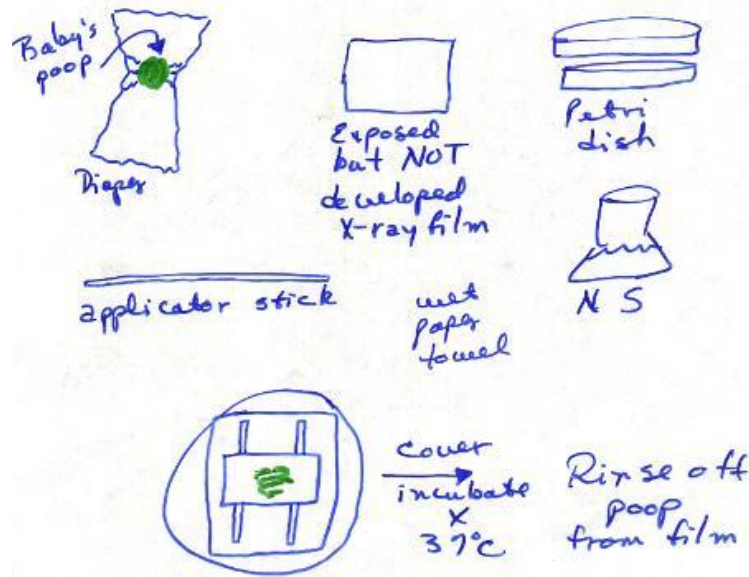 Baby's
poop
Diaper
Exposed
but NOT
developed
X-ray film
Petri
dish
N S
applicator stick
wet
paper
towel
cover
incubate
x
37°C
Rinse off
poop
from film